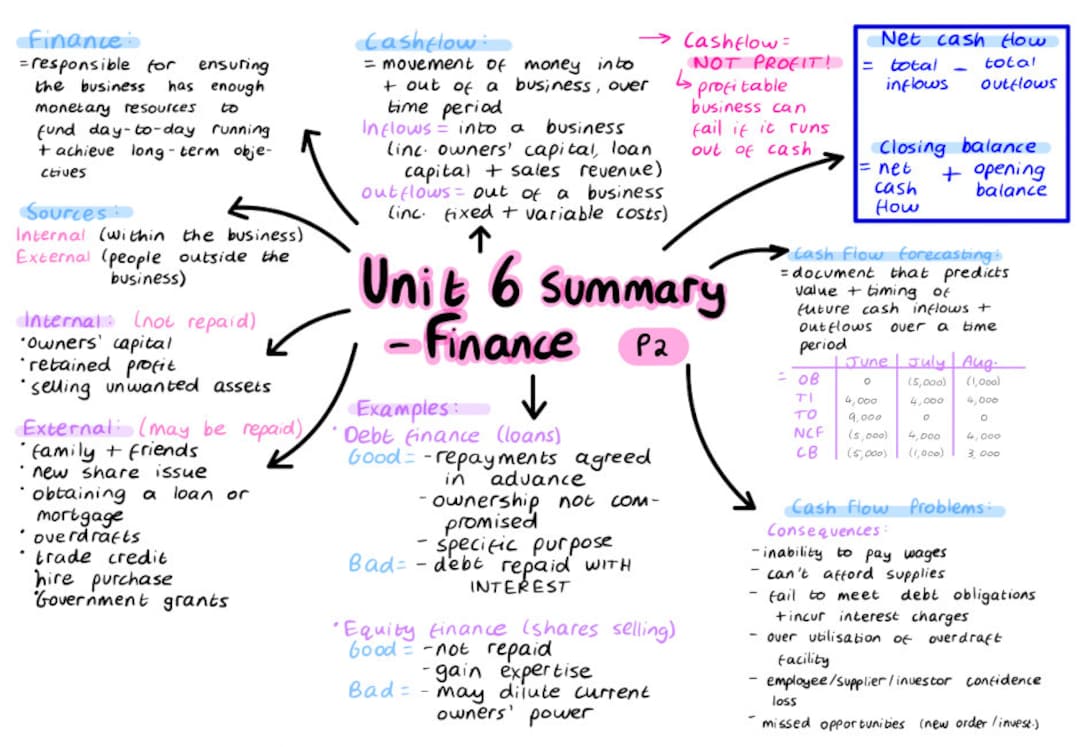 Unit 6 Summary
- Finance
P2
Finance:
= responsible for ensuring
the business has enough
monetary resources to
fund day-to-day running
+ achieve long-term obje-
ctives
Sources:
Internal (within the business)
External (people outside the
business)
Internal: (not repaid)
• owners' capital
• retained profit
• selling unwanted assets
External: (may be repaid)
• family + friends
• new share issue
• obtaining a loan or
mortgage
• overdrafts
• trade credit
hire purchase
• Government grants
Cashflow:
= movement of money into
+ out of a business, over
time period
Inflows = into a business
(inc. owners' capital, loan
capital + sales revenue)
outflows = out of a business
(inc. fixed + variable costs)
→ Cashflow =
NOT PROFIT!
↳ profitable
business can
fail if it runs
out of cash
Net cash flow
= total inflows - total outflows
Closing balance
= net cash flow + opening balance
Examples:
• Debt finance (loans)
Good = - repayments agreed
in advance
- ownership not com-
promised
- specific purpose
Bad = - debt repaid WITH
INTEREST
• Equity finance (shares selling)
Good = - not repaid
- gain expertise
Bad = - may dilute current
owners' power
Cash Flow Forecasting:
= document that predicts
value + timing of
future cash inflows +
outflows over a time
period
June July Aug.
= OB 0 (5,000) (1,000)
TI 4,000 4,000 4,000
TO 9,000 0 0
NCF (5,000) 4,000 4,000
CB (5,000) (1,000) 3,000
Cash Flow Problems:
Consequences:
- inability to pay wages
- can't afford supplies
- fail to meet debt obligations
+ incur interest charges
- over utilisation of overdraft
facility
- employee/supplier/investor confidence
loss
- missed opportunities (new order/invest.)